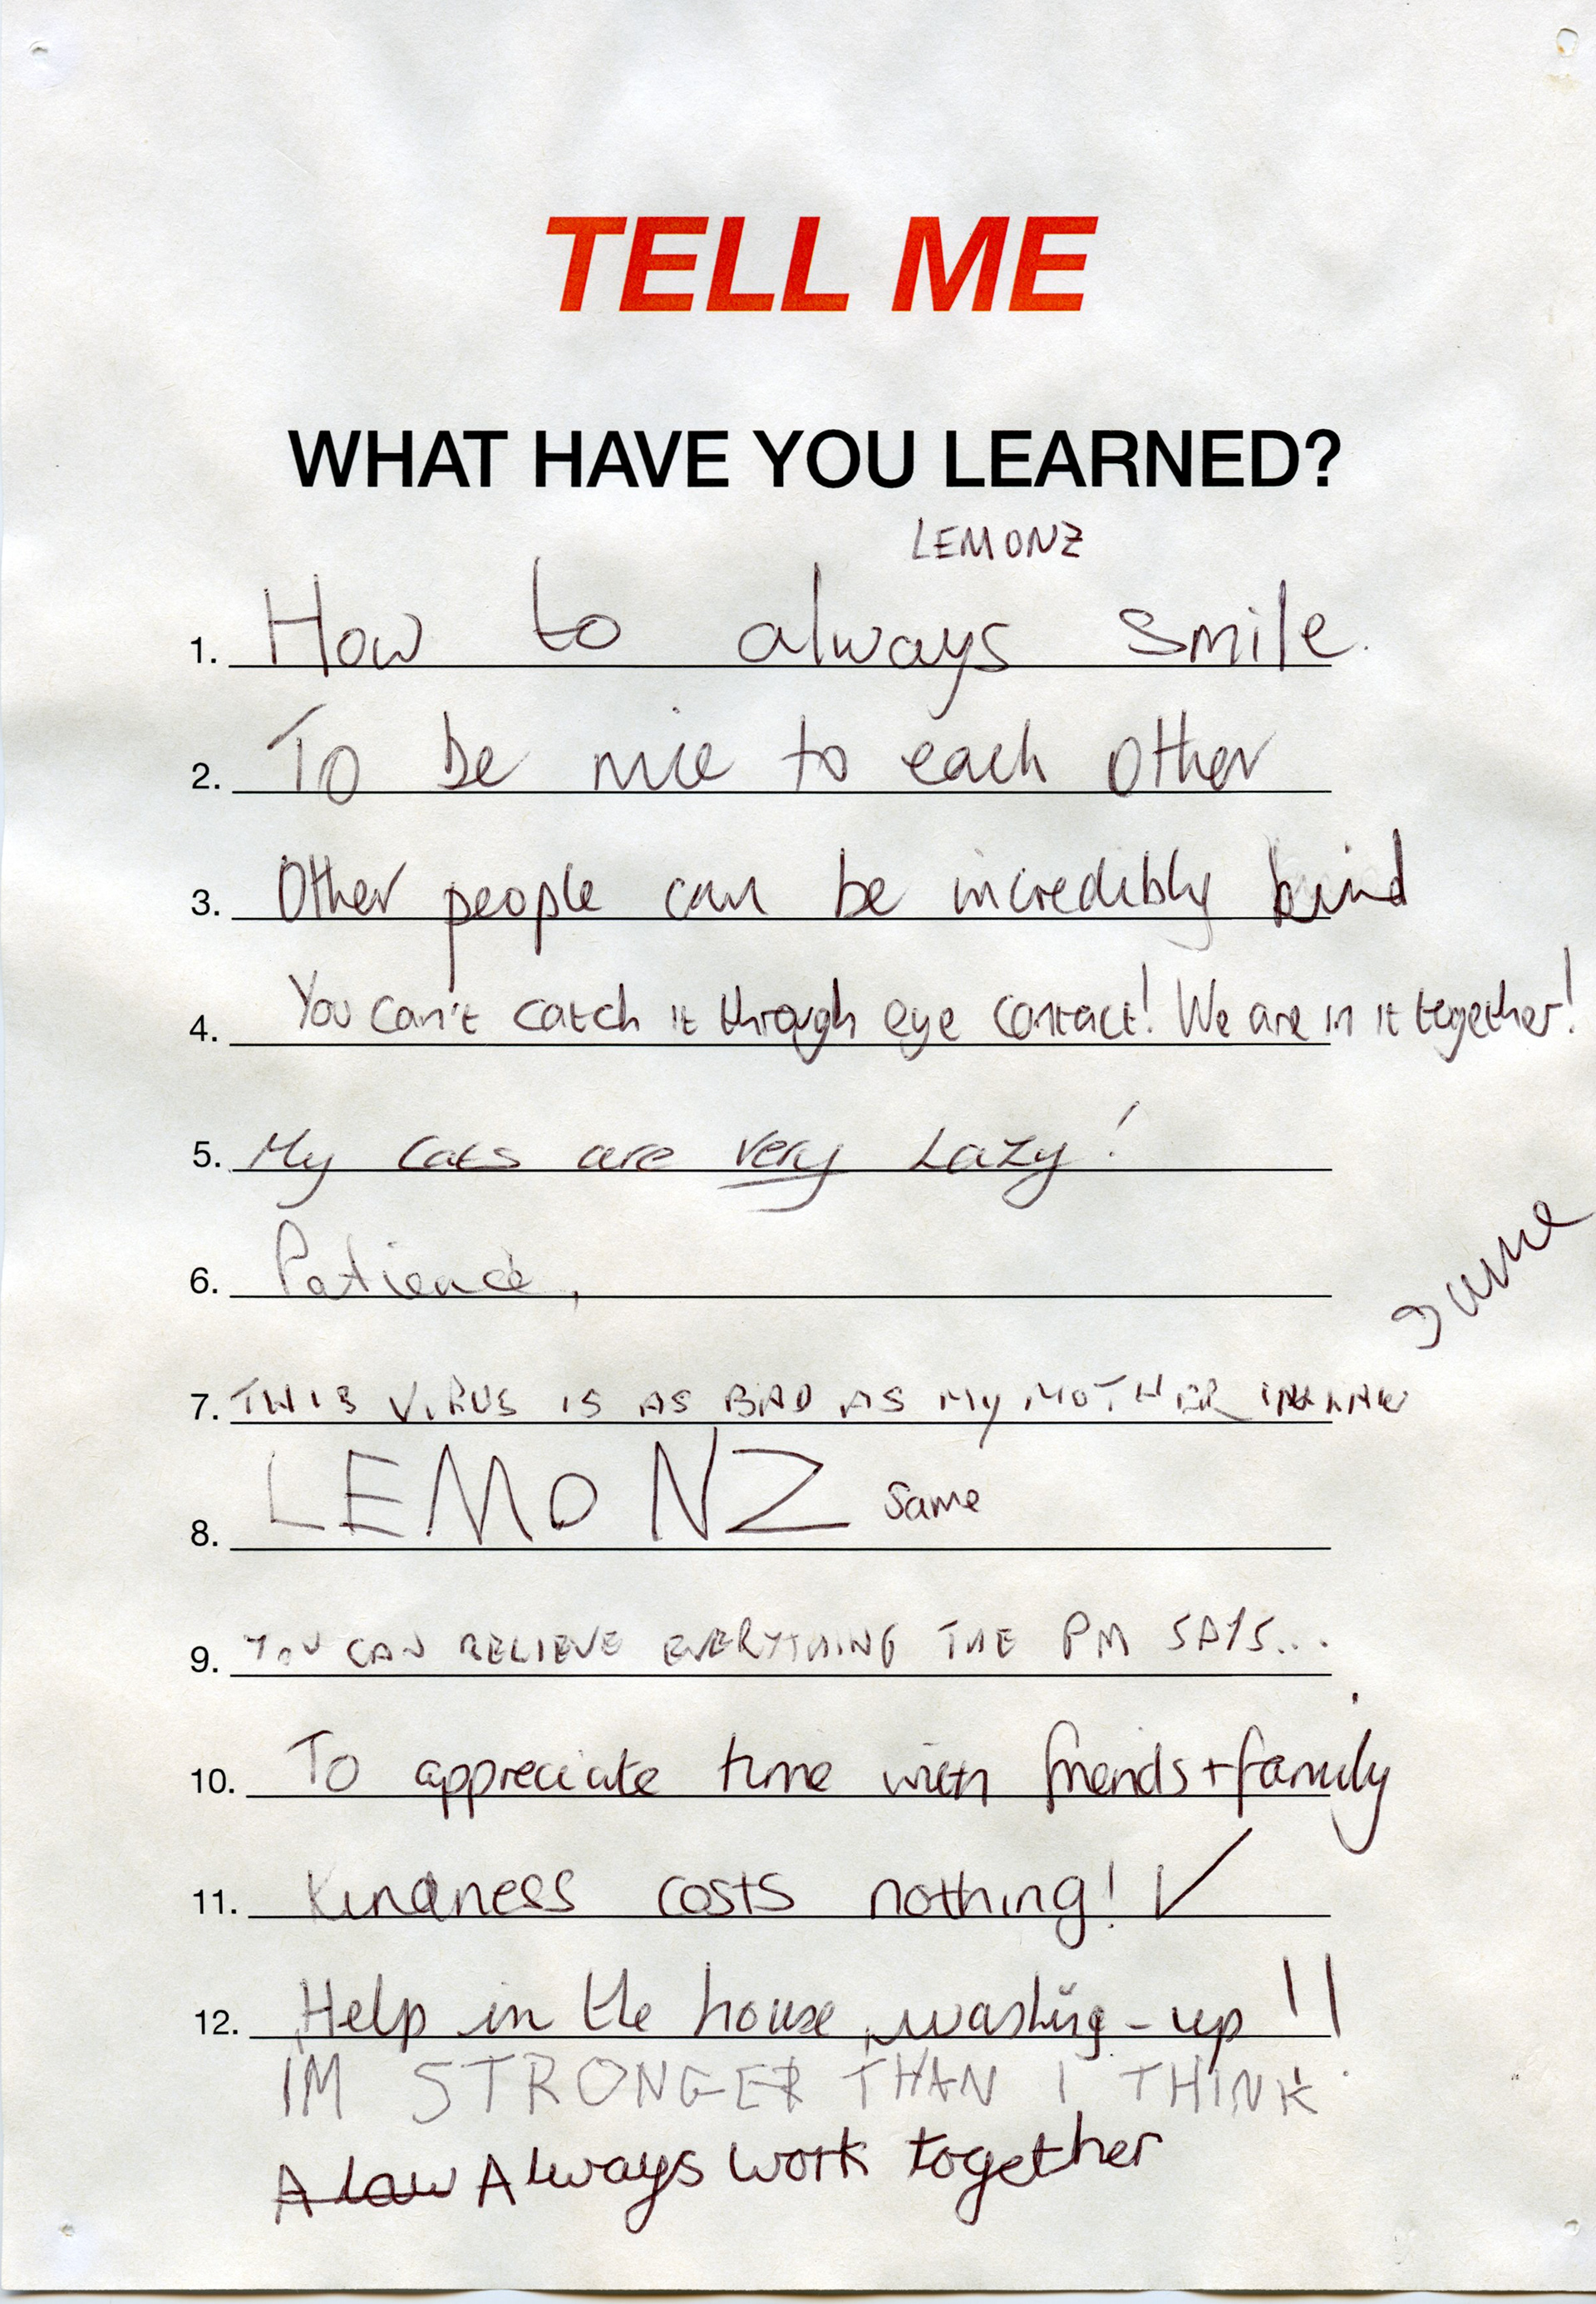 TELL ME
WHAT HAVE YOU LEARNED?
LEMONZ
1. How to always smile.
2. To be nice to each other
3. Other people can be incredibly kind
4. You can't catch it through eye contact! We are in it together!
5. My cats are very Lazy!
6. Patience,
same
7. THIS VIRUS IS AS BAD AS MY MOTHER IN LAW
8. LEMONZ same
9. YOU CAN BELIEVE EVERYTHING THE PM SAYS...
10. To appreciate time with friends + family
11. Kindness costs nothing! ✓
12. Help in the house, washing-up!!
IM STRONGER THAN I THINK
Alaw Always work together